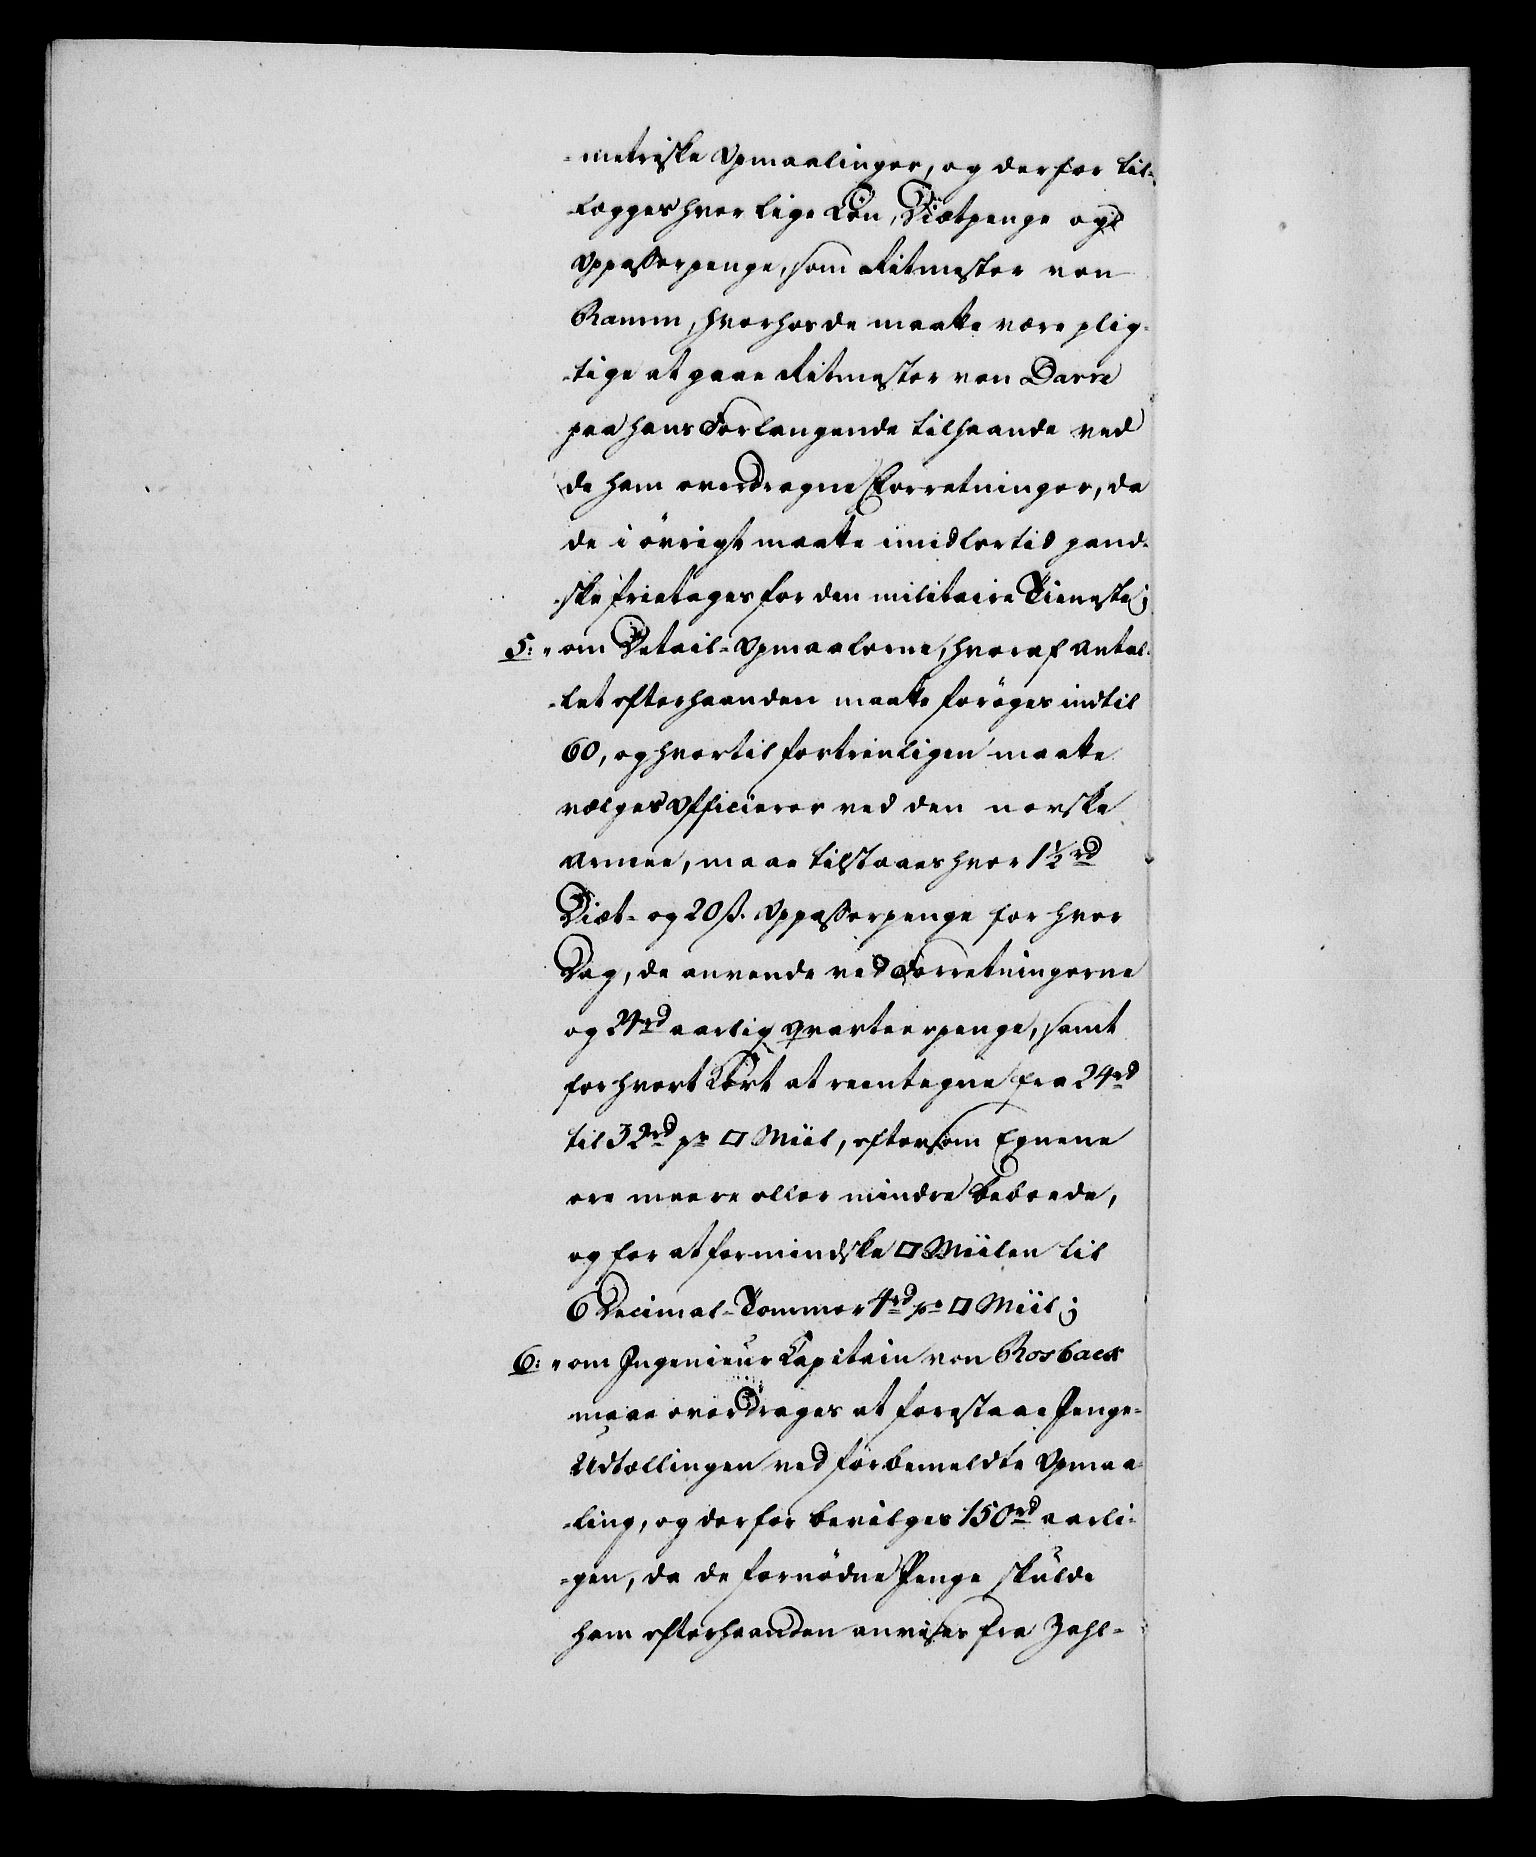 -metriske Opmaalinger, og derfor til-
-lægges hver lige Løn, Diætpenge og
Oppasserpenge, som Ritmester von
Ramm, hvorhos de maatte være plig-
-tige at gaae Ritmester von Darre
paa hans Forlangende tilhaande ved
de ham overdragne Forretninger, da
de i øvrigt maatte imidlertid gand-
-ske fritages for den militaire Tieneste;
5: "om Detail-Opmaalerne, hvoraf Antal-
-let efterhaanden maatte forøges indtil
60, og hvortil fortrinligen maatte
vælges Officierer ved den norske
Armee, maae tilstaaes hver 1½ rd
Diæt- og 20 ß. Oppasserpenge for hver
Dag, de anvende ved Forretningerne
og 24 rd aarlig Qvarteerpenge, samt
for hvert Kort at reentegne fra 24 rd
til 32 rd pr □ Miil, eftersom Egnene
ere meere eller mindre beboede,
og for at formindske □ Miilen til
6 Decimal-Tommer 4 rd pr □ Miil;
6: "om Ingenieur Capitain von Rosback
maae overdrages at forestaae Penge-
Udtællingen ved førbemeldte Opmaa-
-ling, og derfor bevilges 150 rd aarli-
-gen, da de fornødne Penge skulde
ham efterhaanden anvises fra Zahl-